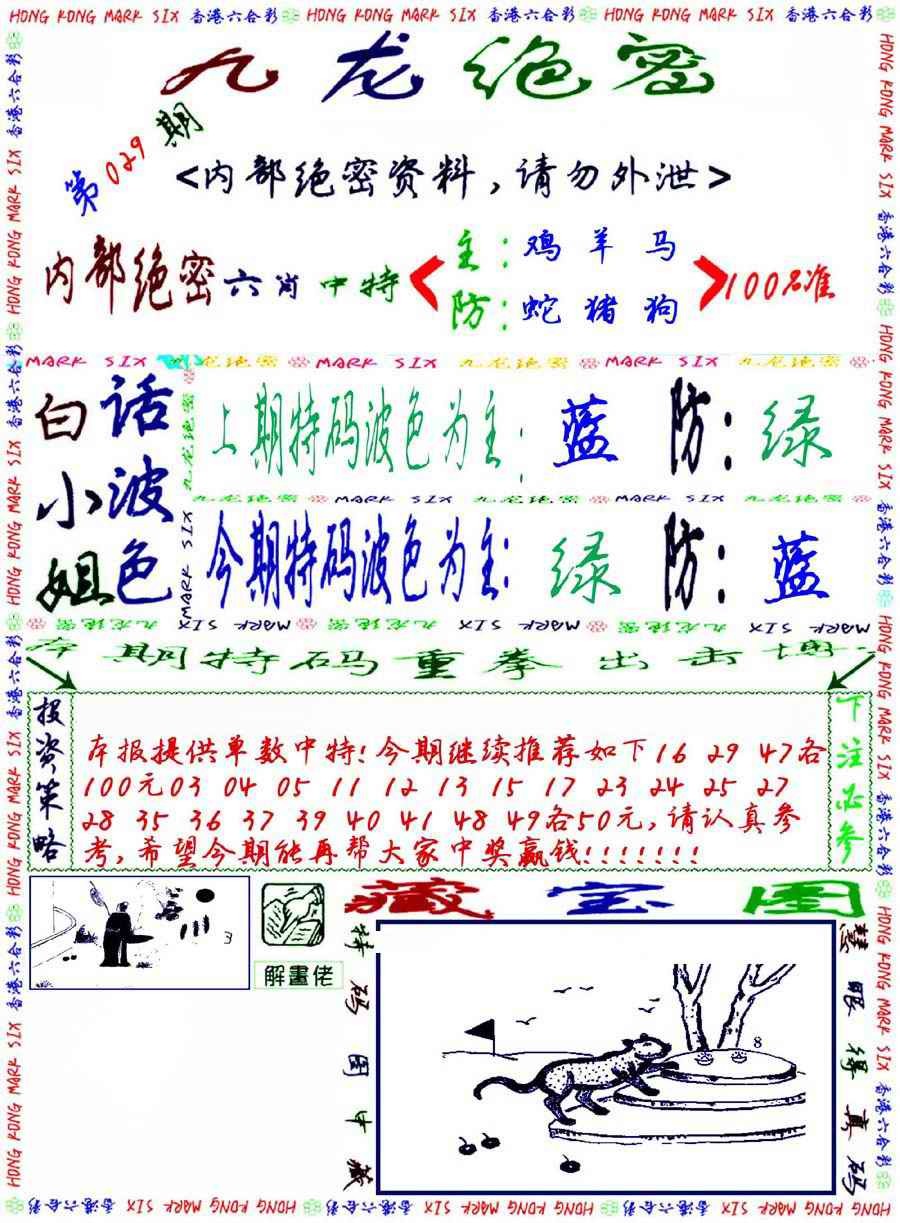 HONG KONG MARK SIX 香港六合彩 HONG KONG MARK SIX 香港六合彩 HONG KONG MARK SIX 香港六合彩
九龙绝密
第029期
<内部绝密资料,请勿外泄>
内部绝密六肖中特
主:鸡羊马
防:蛇猪狗
100%准
MARK SIX 九龙绝密 MARK SIX 九龙绝密 MARK SIX 九龙绝密
白话小波姐色
上期特码波色为主:蓝 防:绿
九龙绝密 MARK SIX 九龙绝密 MARK SIX 九龙绝密
今期特码波色为主:绿 防:蓝
MARK SIX 九龙绝密 MARK SIX 九龙绝密 MARK SIX 九龙绝密
本期特码重拳出击博
投资策略
下注必参
本报提供单数中特!今期继续推荐如下16 29 47各
100元03 04 05 11 12 13 15 17 23 24 25 27
28 35 36 37 39 40 41 48 49各50元,请认真参
考,希望今期能再帮大家中奖赢钱!!!!!!!
藏宝图
解畫佬
特码图中藏
慧眼得真码
3
8
HONG KONG MARK SIX 香港六合彩 HONG KONG MARK SIX 香港六合彩 HONG KONG MARK SIX 香港六合彩